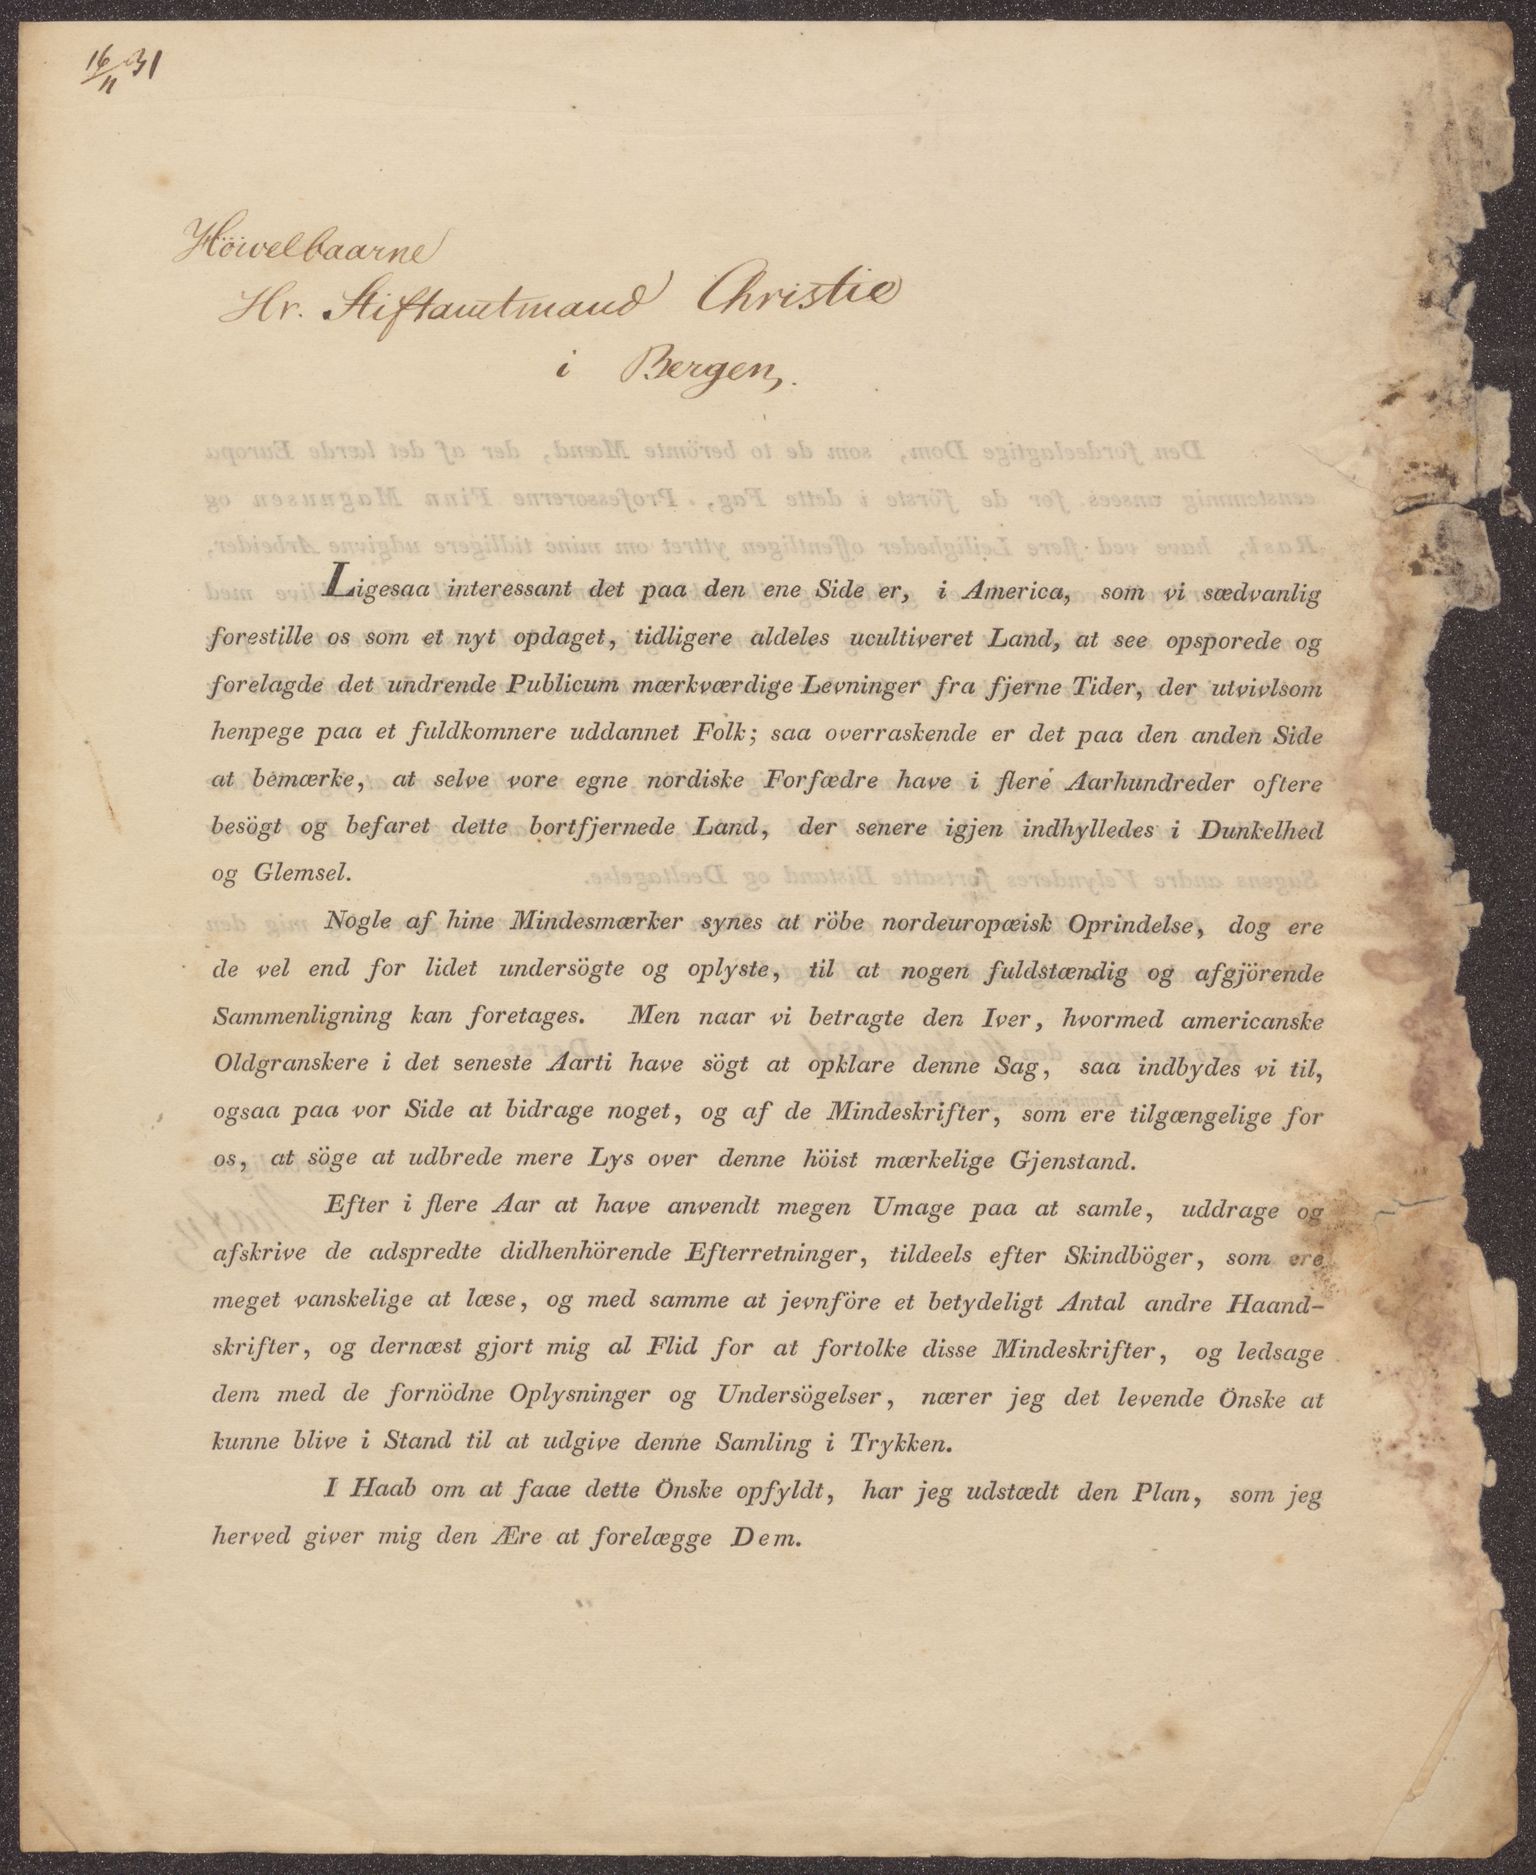 16/11 31
Höivelbaarne
Hr. Stiftamtmand Christie
i Bergen.
Ligesaa interessant det paa den ene Side er, i America, som vi sædvanlig
forestille os som et nyt opdaget, tidligere aldeles ucultiveret Land, at see opsporede og
forelagde det undrende Publicum mærkværdige Levninger fra fjerne Tider, der utvivlsom
henpege paa et fuldkomnere uddannet Folk; saa overraskende er det paa den anden Side
at bemærke, at selve vore egne nordiske Forfædre have i flere Aarhundreder oftere
besögt og befaret dette bortfjernede Land, der senere igjen indhylledes i Dunkelhed
og Glemsel.
Nogle af hine Mindesmærker synes at röbe nordeuropæisk Oprindelse, dog ere
de vel end for lidet undersögte og oplyste, til at nogen fuldstændig og afgjörende
Sammenligning kan foretages. Men naar vi betragte den Iver, hvormed americanske
Oldgranskere i det seneste Aarti have sögt at opklare denne Sag, saa indbydes vi til,
ogsaa paa vor Side at bidrage noget, og af de Mindeskrifter, som ere tilgængelige for
os, at söge at udbrede mere Lys over denne höist mærkelige Gjenstand.
Efter i flere Aar at have anvendt megen Umage paa at samle, uddrage og
afskrive de adspredte didhenhörende Efterretninger, tildeels efter Skindböger, som ere
meget vanskelige at læse, og med samme at jevnföre et betydeligt Antal andre Haand-
skrifter, og dernæst gjort mig al Flid for at fortolke disse Mindeskrifter, og ledsage
dem med de fornödne Oplysninger og Undersögelser, nærer jeg det levende Önske at
kunne blive i Stand til at udgive denne Samling i Trykken.
I Haab om at faae dette Önske opfyldt, har jeg udstædt den Plan, som jeg
herved giver mig den Ære at forelægge Dem.